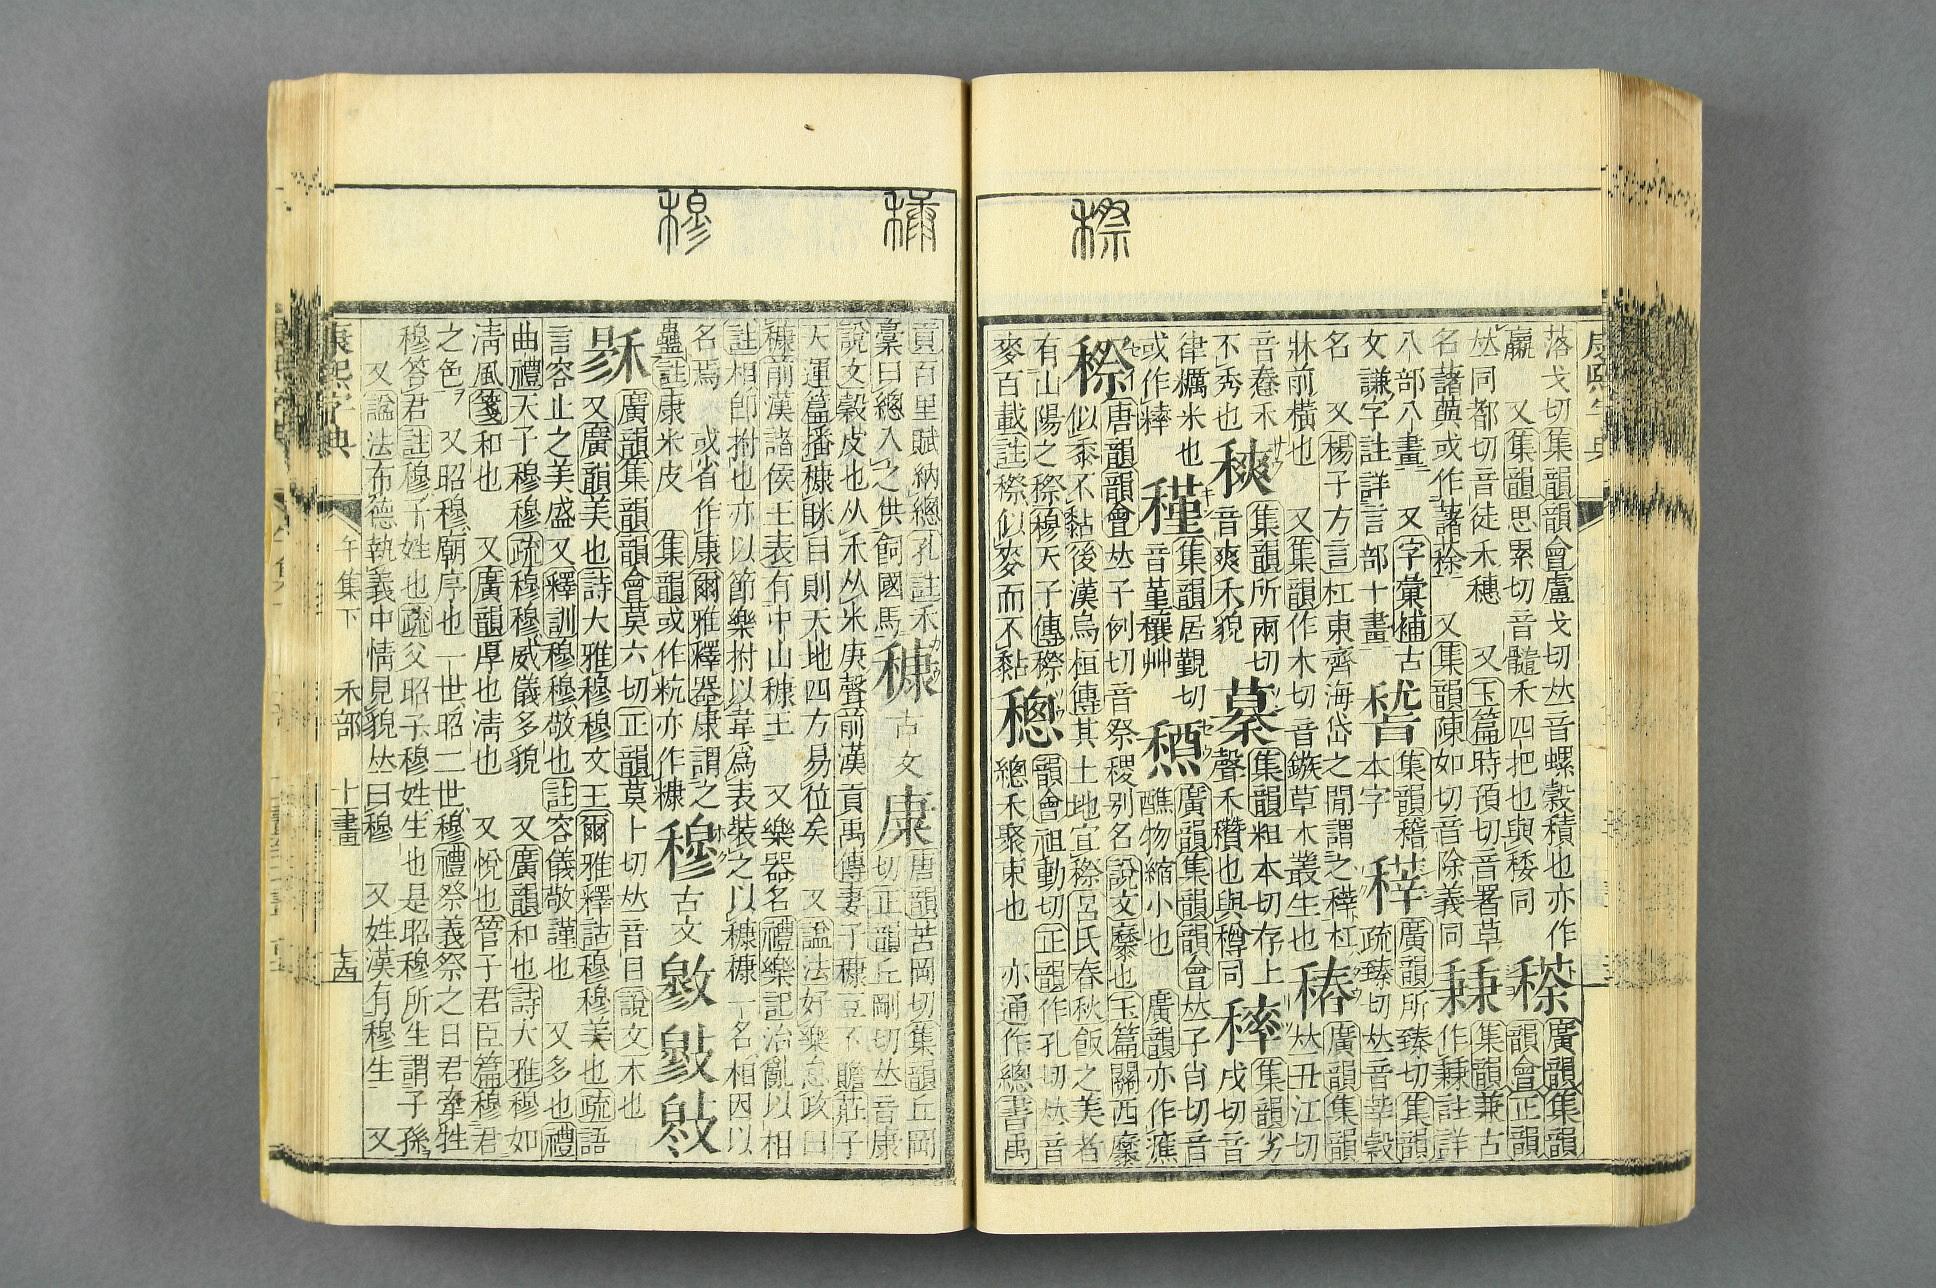 穄
康熙字典
落戈切集韻韻會盧戈切𠀤音螺穀積也亦作
臝 又集韻思累切音髓禾四把也與稌廣韻集韻
同 韻會正韻
𠀤同都切音徒禾穗 又玉篇時預切音署草集韻兼古
名藷蕷或作藷蒣 又集韻陳如切音除義同作註詳
八部八畫 又字彙補古集韻稽廣韻所臻切集韻
文謙字註詳言部十畫 本字 疏臻切𠀤音莘穀
名 又楊子方言杠東齊海岱之閒謂之杠 廣韻集韻
牀前橫也 又集韻作木切音鏃草木叢生也 𠀤丑江切
音舂禾 集韻所兩切 集韻粗本切存上 集韻劣
不秀也 音爽禾貌 聲禾穳也與同 戌切音
律糲米也 集韻居覲切 廣韻集韻韻會𠀤子肖切音
或作 音堇穰艸 醮物縮小也 廣韻亦作潐
穄唐韻韻會𠀤子例切音祭稷別名說文穈也玉篇關西穈
似黍不黏後漢烏桓傳其土地宜穄呂氏春秋飯之美者
有山陽之穄穆天子傳穄 韻會祖動切正韻作孔切𠀤音
麥百載註穄似麥而不黏 總禾聚束也 亦通作總書禹
穅
穆
貢百里賦納總孔註禾穅古文康唐韻苦岡切集韻丘岡
稾曰總入之供飼國馬 切正韻丘剛切𠀤音康
說文穀皮也从禾从米庚聲前漢貢禹傳妻子穅豆不贍莊子
天運篇播穅眯目則天地四方易位矣 又諡法好樂怠政曰
穅前漢諸侯王表有中山穅王 又樂器名禮樂記治亂以相
註相卽拊也亦以節樂拊以韋爲表裝之以穅穅一名相因以
名焉 或省作康爾雅釋器康謂之穆古文
蠱註康米皮 集韻或作粇亦作糠
廣韻集韻韻會莫六切正韻莫卜切𠀤音目說文禾也
又廣韻美也詩大雅穆穆文王爾雅釋詁穆穆美也疏語
言容止之美盛又釋訓穆穆敬也註容儀敬謹也 又多也禮
曲禮天子穆穆疏穆穆威儀多貌 又廣韻和也詩大雅穆如
淸風箋和也 又廣韻厚也淸也 又悅也管子君臣篇穆君
之色 又昭穆廟序也一世昭二世穆禮祭義祭之日君牽牲
穆答君註穆子姓也疏父昭子穆姓生也是昭穆所生謂子孫
又諡法布德執義中情見貌𠀤曰穆 又姓漢有穆生 又
康熙字典 午集下 禾部 十一畫